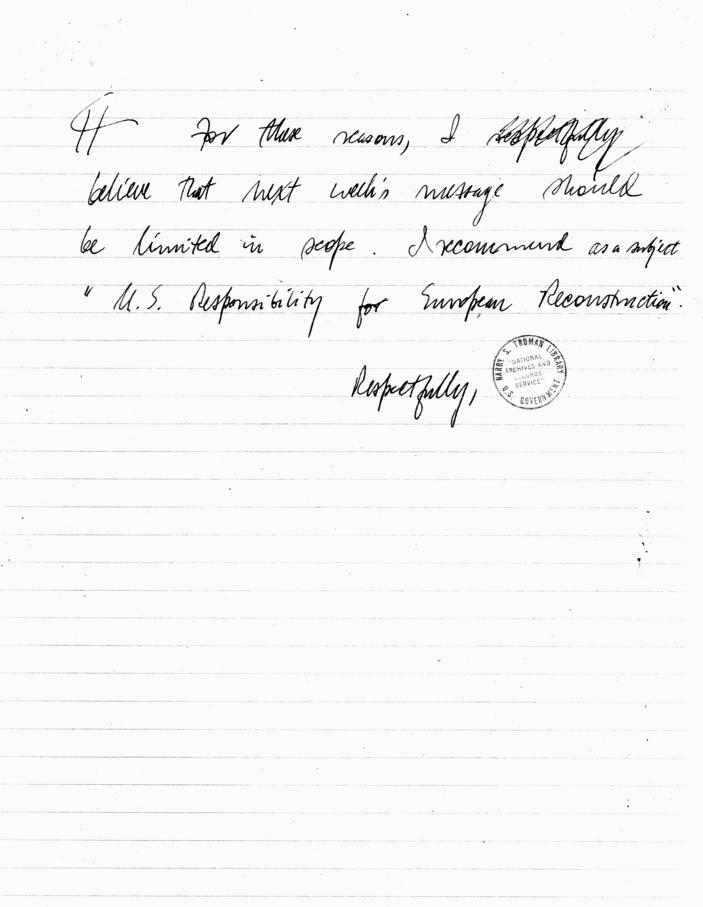 # For these reasons, I respectfully
believe that next week's message should
be limited in scope. I recommend as a subject
"U.S. Responsibility for European Reconstruction".
Respectfully,
HARRY S. TRUMAN LIBRARY
"NATIONAL
ARCHIVES AND
RECORDS
SERVICE"
U.S. GOVERNMENT